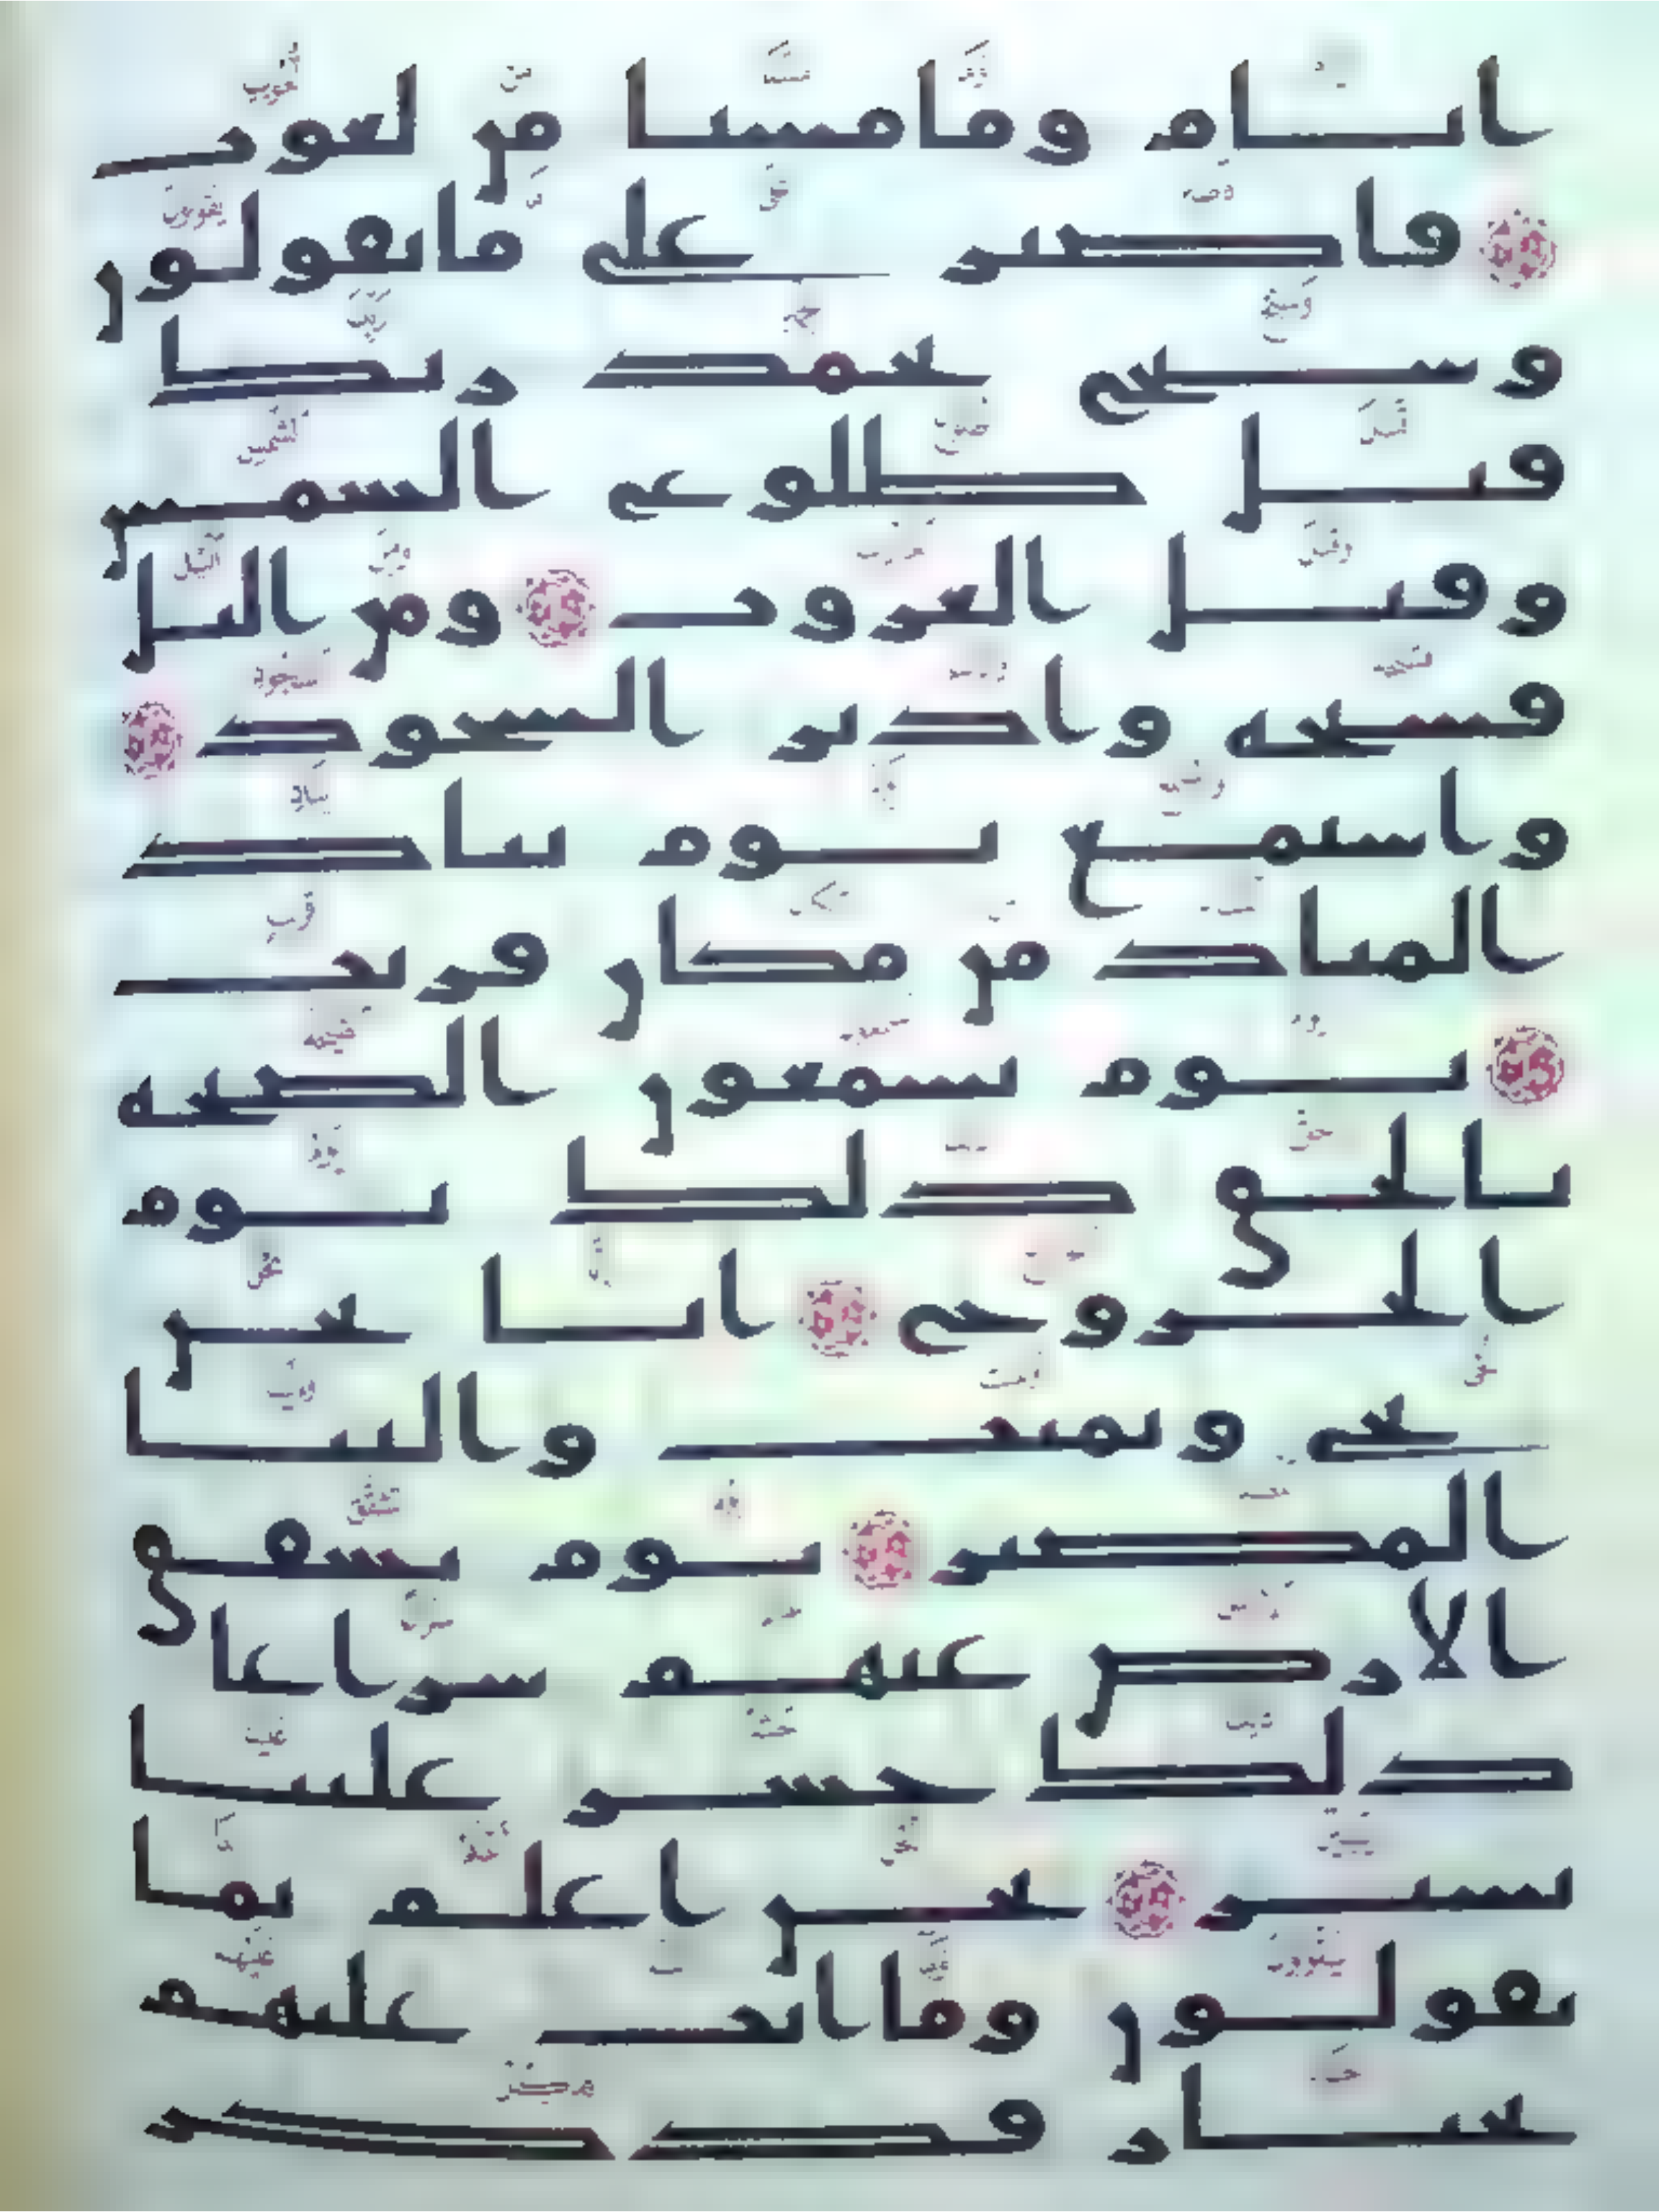 ايام وما مسنا من لغوب
فاصبر على ما يقولون
وسبح بحمد ربك
قبل طلوع الشمس
وقبل الغروب ومن اليل
فسبحه وادبر السجود
واستمع يوم يناد
المناد من مكان قريب
يوم يسمعون الصيحه
بالحق ذلك يوم
الخروج انا نحن
نحي ونميت والينا
المصير يوم تشقق
الارض عنهم سراعا
ذلك حشر علينا
يسير نحن اعلم بما
يقولون وما انت عليهم
بجبار فذكر